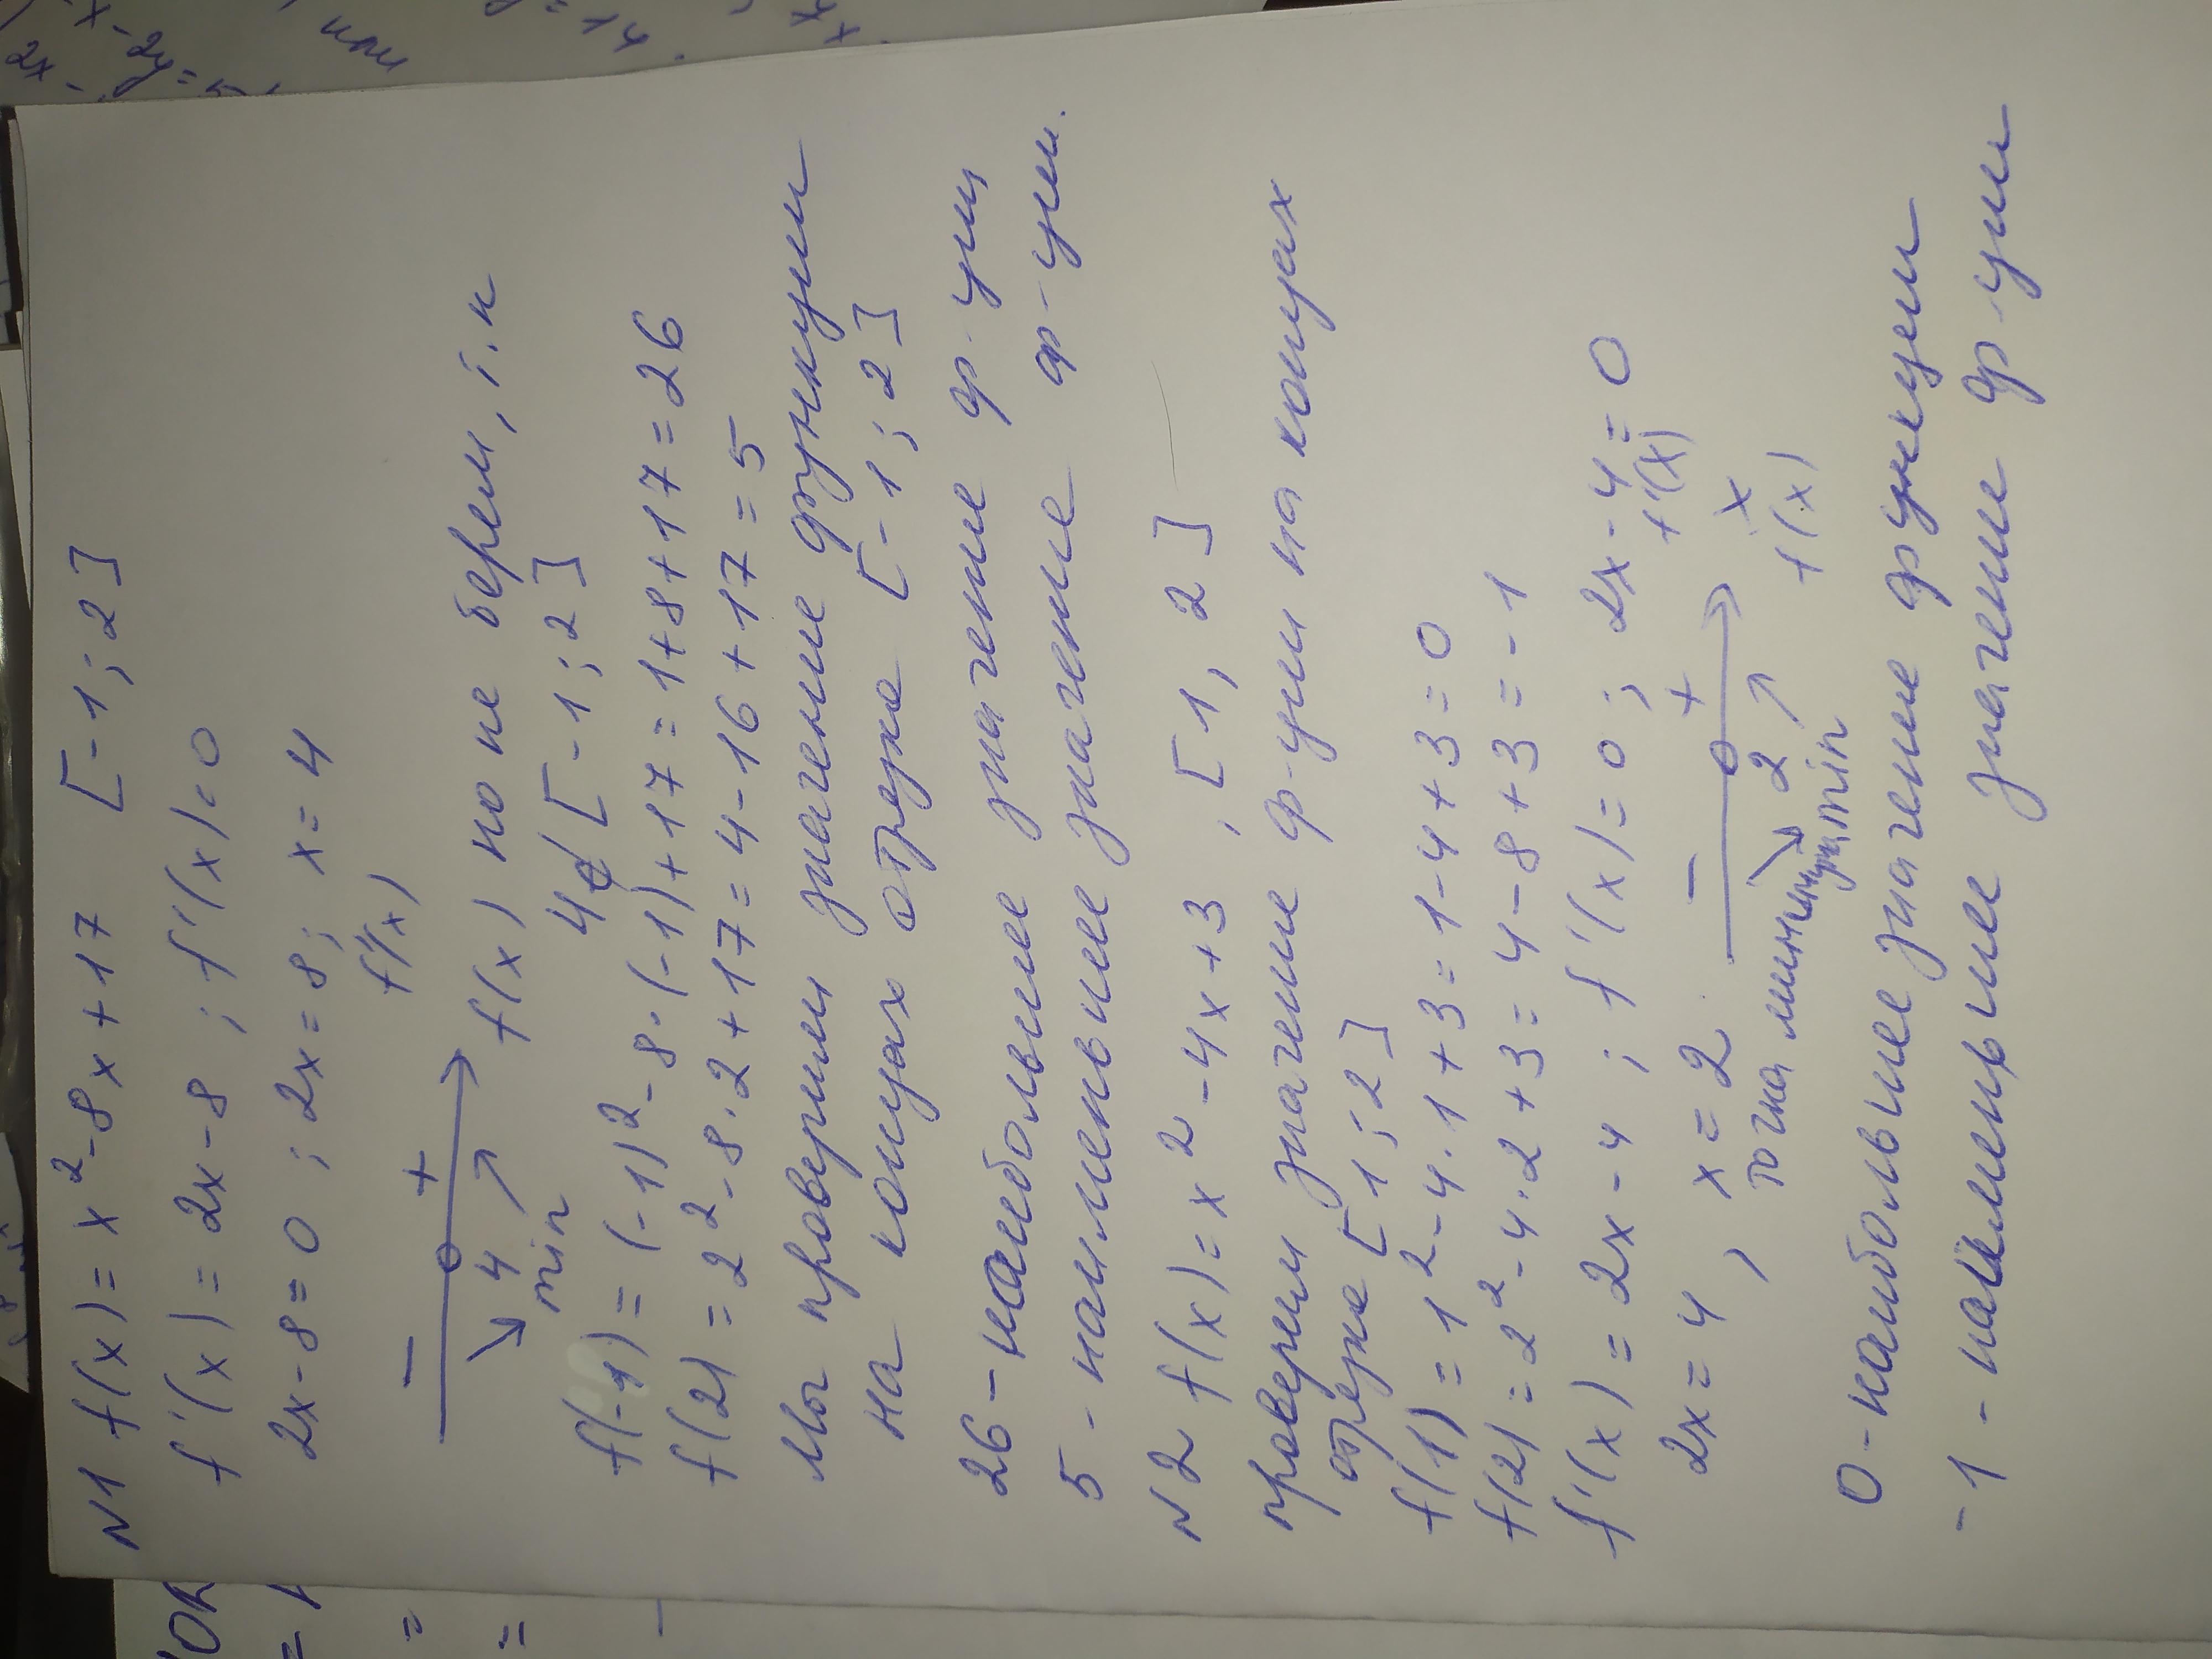 N1 f(x) = x² - 8x + 17 [-1; 2]
f'(x) = 2x - 8 ; f'(x) = 0
2x - 8 = 0 ; 2x = 8; x = 4
- + f'(x)
4 f(x) но не берем, т.к
min 4 ∉ [-1; 2]
f(-1) = (-1)² - 8·(-1) + 17 = 1 + 8 + 17 = 26
f(2) = 2² - 8·2 + 17 = 4 - 16 + 17 = 5
Мы проверим значение функции
на концах отрезке [-1; 2]
26 - наибольшее значение ф-ции
5 - наименьшее значение ф-ции.
N2 f(x) = x² - 4x + 3 , [1, 2]
проверим значение ф-ции на концах
отрезке [1; 2]
f(1) = 1² - 4·1 + 3 = 1 - 4 + 3 = 0
f(2) = 2² - 4·2 + 3 = 4 - 8 + 3 = -1
f'(x) = 2x - 4 ; f'(x) = 0 ; 2x - 4 = 0
2x = 4 , x = 2 - + f'(x)
2 x
точка минимума min f(x)
0 - наибольшее значение функции
-1 - наименьшее значение ф-ции